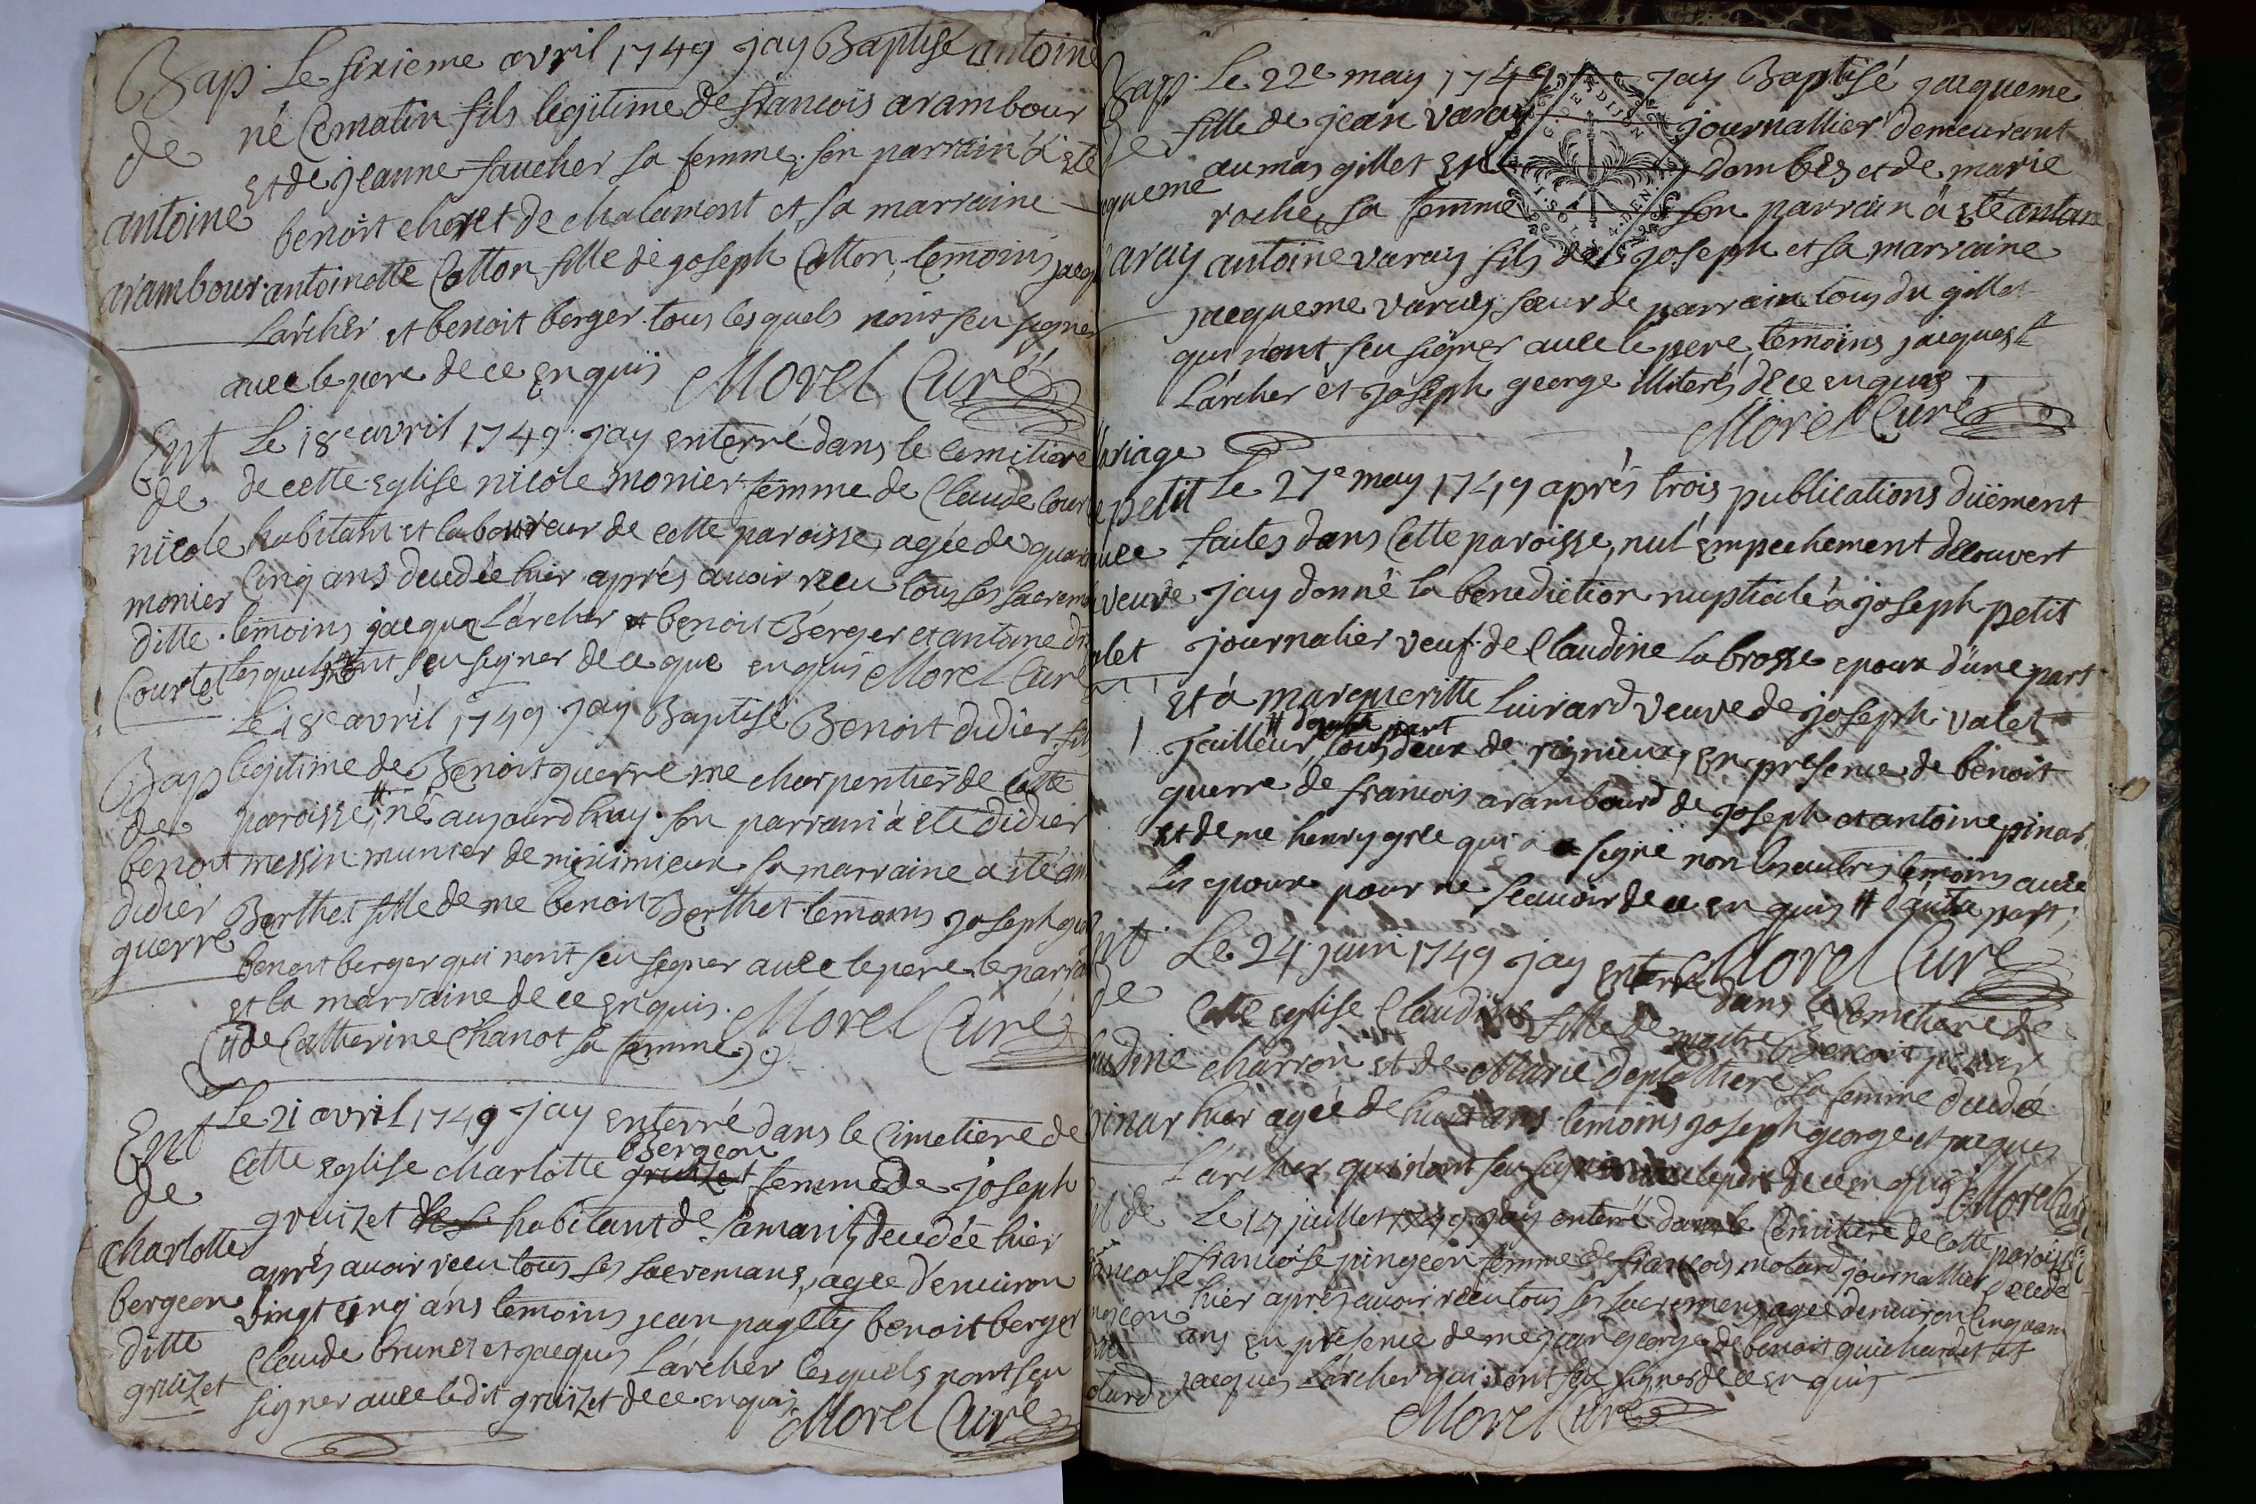 Bap. Le sixieme avril 1749 jay Baptisé antoine
de né Cematin fils legitime de francois arambour
et de jeanne faucher sa femme, son parrain à eté
antoine benoit de chalamont et sa marraine
arambour antoinette Cotton fille de joseph Cotton, temoins
Larcher et benoit berger tous lesquels nont seu signer
avec le pere de ce enquis Morel Curé
Ent Le 18e avril 1749 jay enterré dans le Cemitiere
de de cette Eglise nicole monier femme de Claude
nicole habitant et laboureur de cette paroisse, agée de
monier Cinq ans decedée hier aprés avoir receu tous ses
ditte temoins jacques Larcher et benoit Berger et antoine
Courtet lesquels nont seu signer de ce que enquis Morel Curé
Le 18e avril 1749 jay Baptisé Benoit didier fils
Bap legitime de Benoit guerre me charpentier de cette
de paroisse # né aujourdhuy son parrain à eté didier
benoit messin munier de miximieux sa marraine a eté
didier Berthet fille de me benoit Berthet temoins joseph
guerre benoit berger qui nont seu signer avec le pere le parrain
et la marraine de ce enquis. Morel Curé
(# de Catherine Chanot sa femme)
Le 21 avril 1749 jay enterré dans le Cimetiere de
Ent Cette Eglise charlotte gruizet Bergeon femme de joseph
de gruizet habitant de Samarit, decedée hier
charlotte aprés avoir receu tous ses sacremans, agée denviron
bergeon vingt cinq ans temoins jean benoit berger
ditte Claude brunet et jacques Larcher lesquels nont seu
gruizet signer avec ledit gruizet de ce enquis
Morel Curé
Bap. Le 22e may 1749 jay Baptisé jacqueme
de fille de jean varay journallier demeurant
au mas gillet en dombes et de marie
roche, sa femme son parrain à eté
aray antoine varay fils de joseph et sa marraine
jacqueme varay sœur de parrain tous du gillet
qui nont seu signer avec le pere, temoins jacques
Larcher et joseph george illiterés de ce enquis
Morel Curé
ariage
petit Le 27e may 1749 aprés trois publications düement
faites dans Cette paroisse, nul empechement decouvert
veuve jay donné la benediction nuptiale à joseph petit
journalier veuf de Claudine la brosse epoux d'üne part
et à margueritte Luirard veuve de joseph valet
Tailleur, # tous deux de rignieux, en presence de benoit
guerre de francois arambourd de joseph et antoine pinar
et de me henry qui a signé non les autres temoins avec
les epoux pour ne scavoir de ce enquis # d'autre part,
Morel Curé
Le 24 juin 1749 jay enterré dans le Cemetiere de
de Cette eglise Claudine fille de maitre Benoit pinar
charron et de Marie sa femme decedée
pinar hier agée de huit ans temoins joseph george et jacques
Larcher, qui nont seu signer avec le pere de ce enquis Morel Curé
de Le 14 juillet 1749 jay enterré dans le Cemitiere de Cette paroisse
francoise pingeon femme de francois molard journallier decedé
hier aprés avoir receu tous ses sacremens agée denviron
ans en présence de me jean george de benoit guichardet et
jacques Larcher qui nont seu signer de ce enquis
Morel Curé